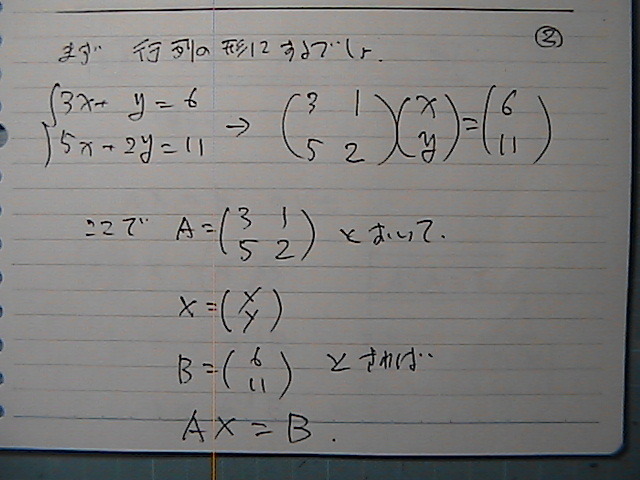 ②
まず 行列の形にするでしょ.
{3x+ y=6
5x+2y=11 → (3 1
5 2)(x
y)=(6
11)
ここで A=(3 1
5 2) とおいて.
X=(x
y)
B=(6
11) とすれば
AX=B.